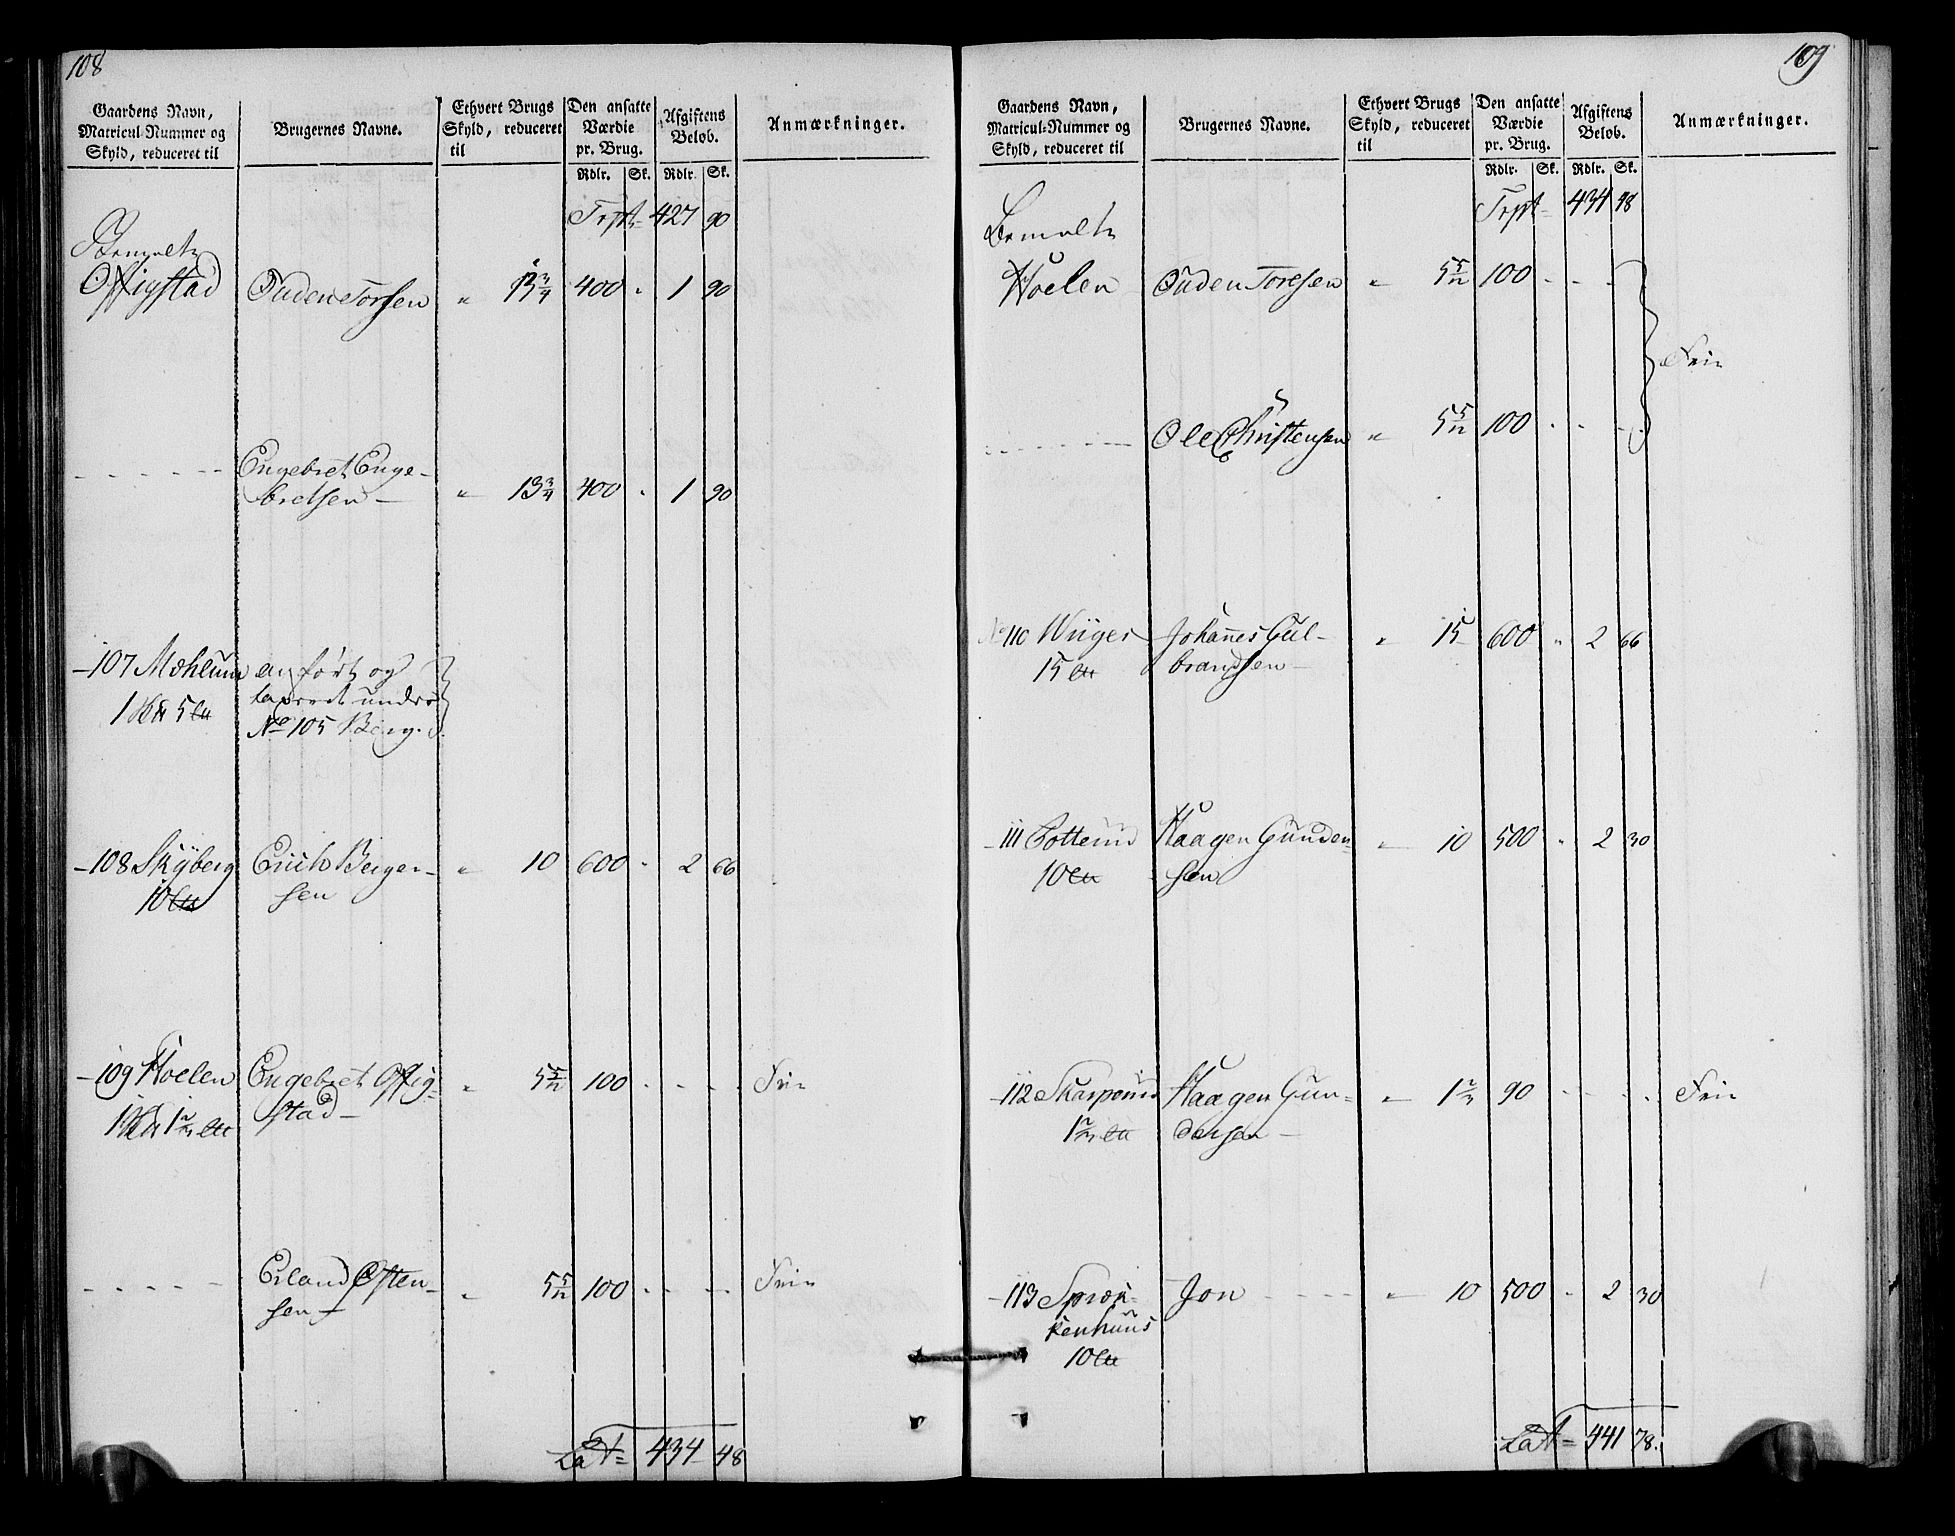 108
Gaardens Navn, Matricul-Nummer og Skyld, reduceret til
Brugernes Navne.
Ethvert Brugs Skyld, reduceret til
Den ansatte Værdie pr. Brug.
Afgiftens Beløb.
Anmærkninger.
Rdlr. Sk. Rdlr. Sk.
Trpt= 427 90
Bemelte
Offigstad Ouden Torsen " 13 3/4 400 " 1 90
- - - - - - Engebret Enge-
bretsen — " 13 3/4 400 " 1 90
-107 Mæhlum anført og
1 5 taxeret under
No 105 Berg.
-108 Skÿberg Erich Berger- " 10 600 " 2 66
10 sen
-109 Hoelen Engebret Offig- " 5 5/12 100 - - - - Frie
1 1 2/3 stad —
- - - - - Erland Østen- " 5 5/12 100 - - - - Frie
sen —
Lat= 434 48
109
Gaardens Navn, Matricul-Nummer og Skyld, reduceret til
Brugernes Navne.
Ethvert Brugs Skyld, reduceret til
Den ansatte Værdie pr. Brug.
Afgiftens Beløb.
Anmærkninger.
Rdlr. Sk. Rdlr. Sk.
Trpt= 434 48
Bemelte
Hoelen Ouden Toresen " 5 5/12 100 - - -
Frie
- - - - - - Ole Christensen " 5 5/12 100 - - -
No 110 Wiiger Johannes Gul- " 15 600 " 2 66
15 brandsen —
-111 Haagen Gunder- " 10 500 " 2 30
10 sen
-112 Haagen Gun- " 1 2/3 90 - - - - Frie
1 2/3 dersen —
-113 Spræk- Jon - - - - " 10 500 " 2 30
kenhuus
10
Lat= 441 78.